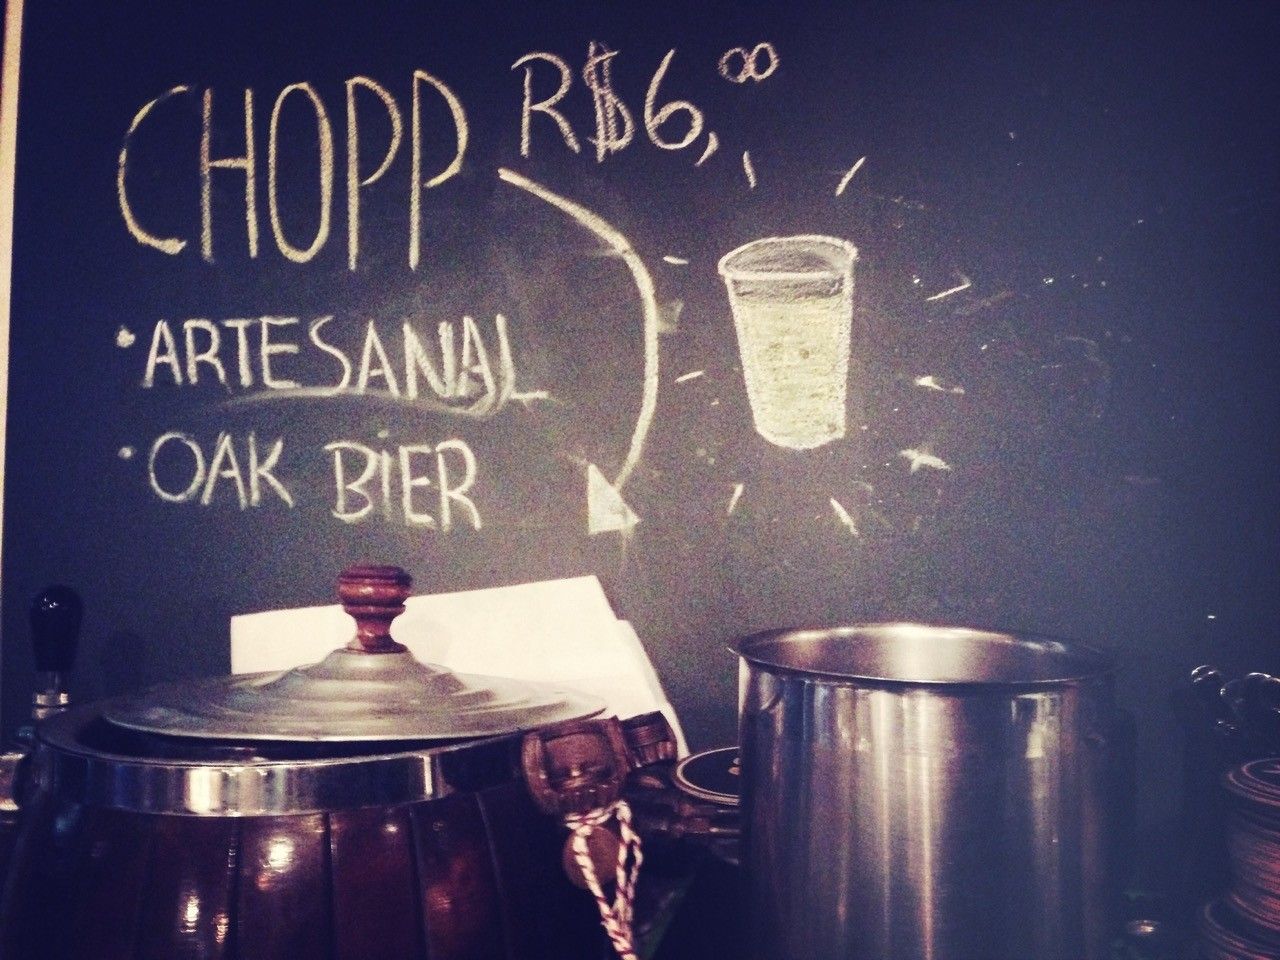 CHOPP R$6,00
• ARTESANAL
• OAK BiER